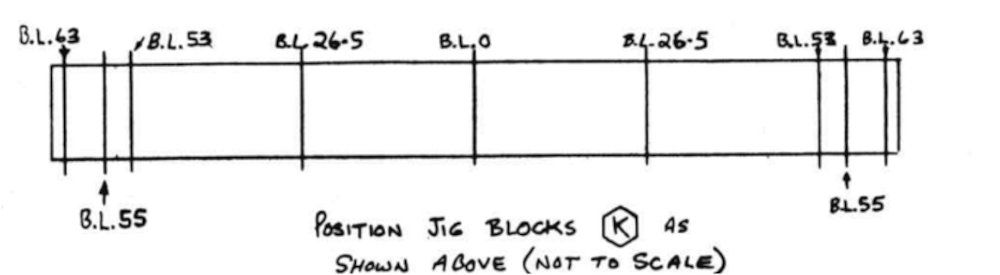 B.L.63 B.L.53 B.L.26.5 B.L.0 B.L.26.5 B.L.53 B.L.63
B.L.55 B.L.55
POSITION JIG BLOCKS K AS
SHOWN ABOVE (NOT TO SCALE)